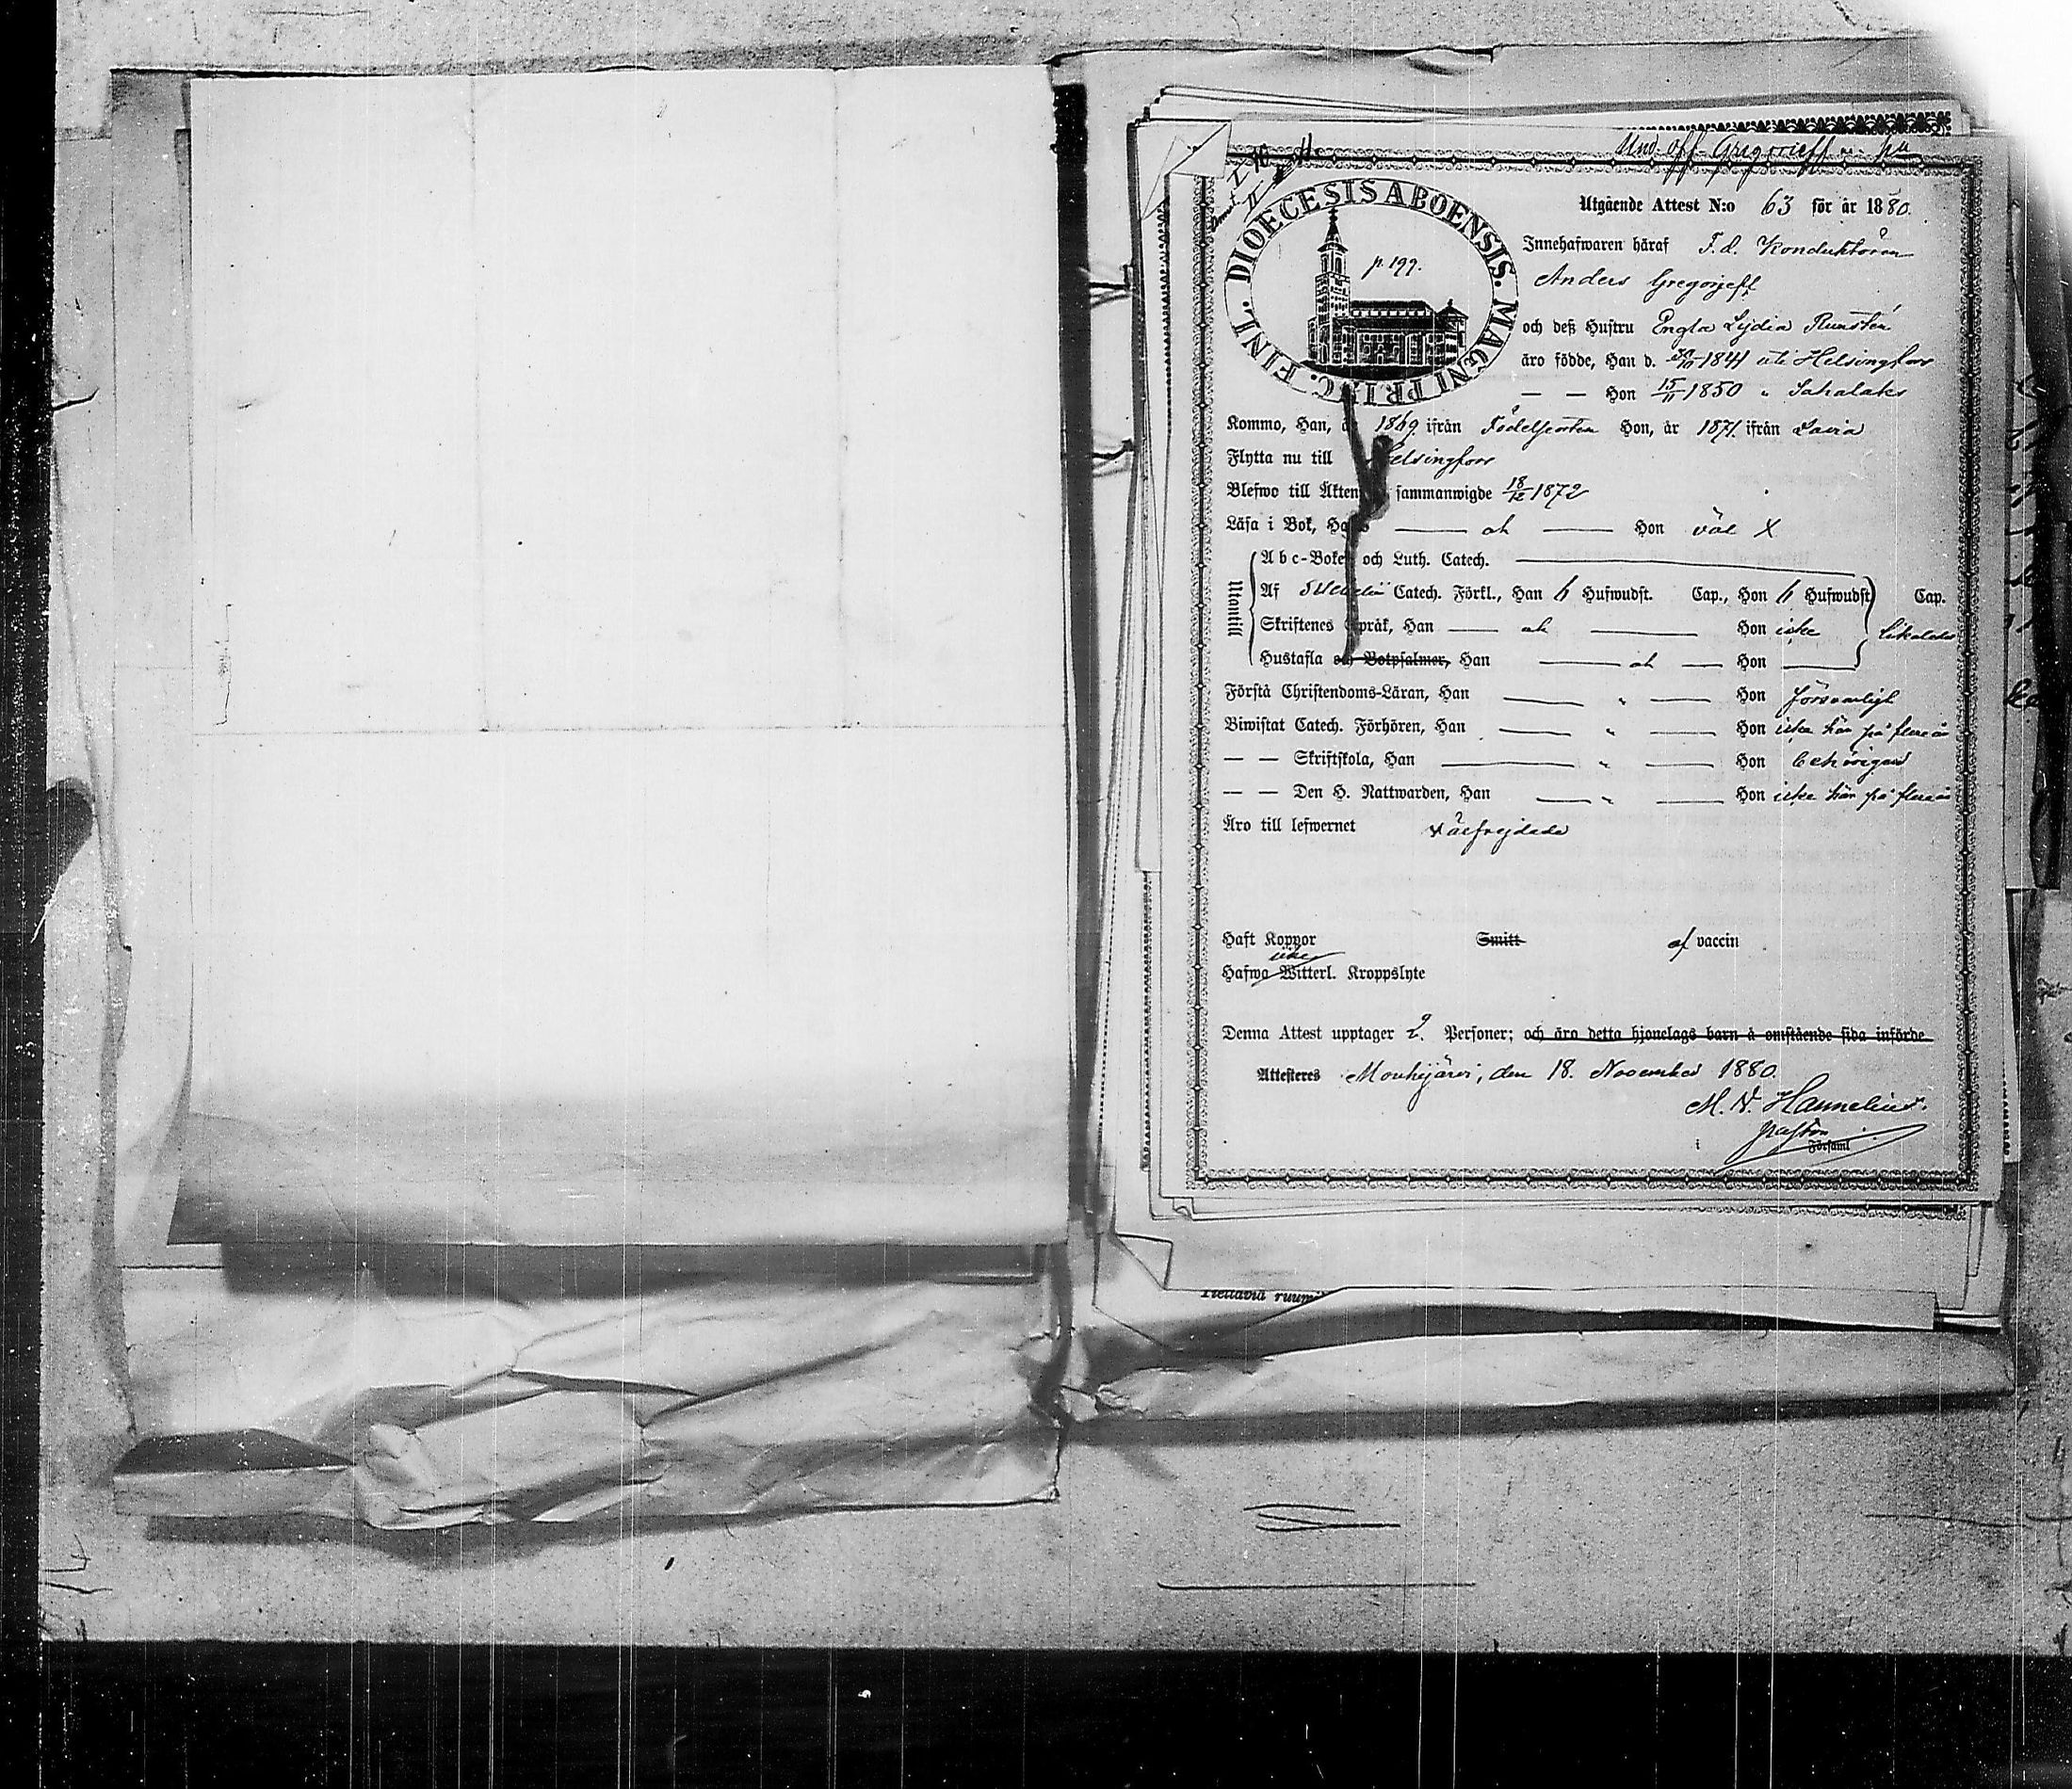 Und. off. Gregorieff
DIOECESIS ABOENSIS. MAGNI PRINC. FINL.
p. 199.
Utgående Attest N:o 63 för år 1880.
Innehafwaren häraf F. d. Konduktören
Anders Gregorjeff
och deß Hustru Engla Lydia Runstén
äro födde, Han d. 1841 uti Helsingfors
— — Hon 15/11 1850 " Sahalaks
Kommo, Han, år 1869 ifrån Födelseorten Hon, år 1871 ifrån Lavia
Flytta nu till Helsingfors
Blefwo till Äkten sammanwigde 18/12 1872
Läsa i Bok, Han — och — Hon väl X
Utantill
Abc-Boken och Luth. Catech. —
Af Svebelii Catech. Förkl., Han 6 Hufwudst. Cap., Hon 6 Hufwudst Cap.
Skriftenes Språk, Han — och — Hon icke
Hustafla och Botpsalmer, Han — och — Hon —
Förstå Christendoms-Läran, Han — " — Hon försvarligt
Biwistat Catech. Förhören, Han — " — Hon icke här på flere år
— — Skriftskola, Han — " — Hon behörigen
— — Den H. Nattwarden, Han — " — Hon icke här på flere år
Äro till lefwernet välfrejdade
Haft Koppor Smitt af vaccin
icke
Hafwa Witterl. Kroppslyte
Denna Attest upptager 2. Personer; och äro detta hjonelags barn å omstående sida införde
Attesteres Mouhijärvi, den 18. November 1880.
M. V. Hannelius.
pastor
i Församl
ruumi